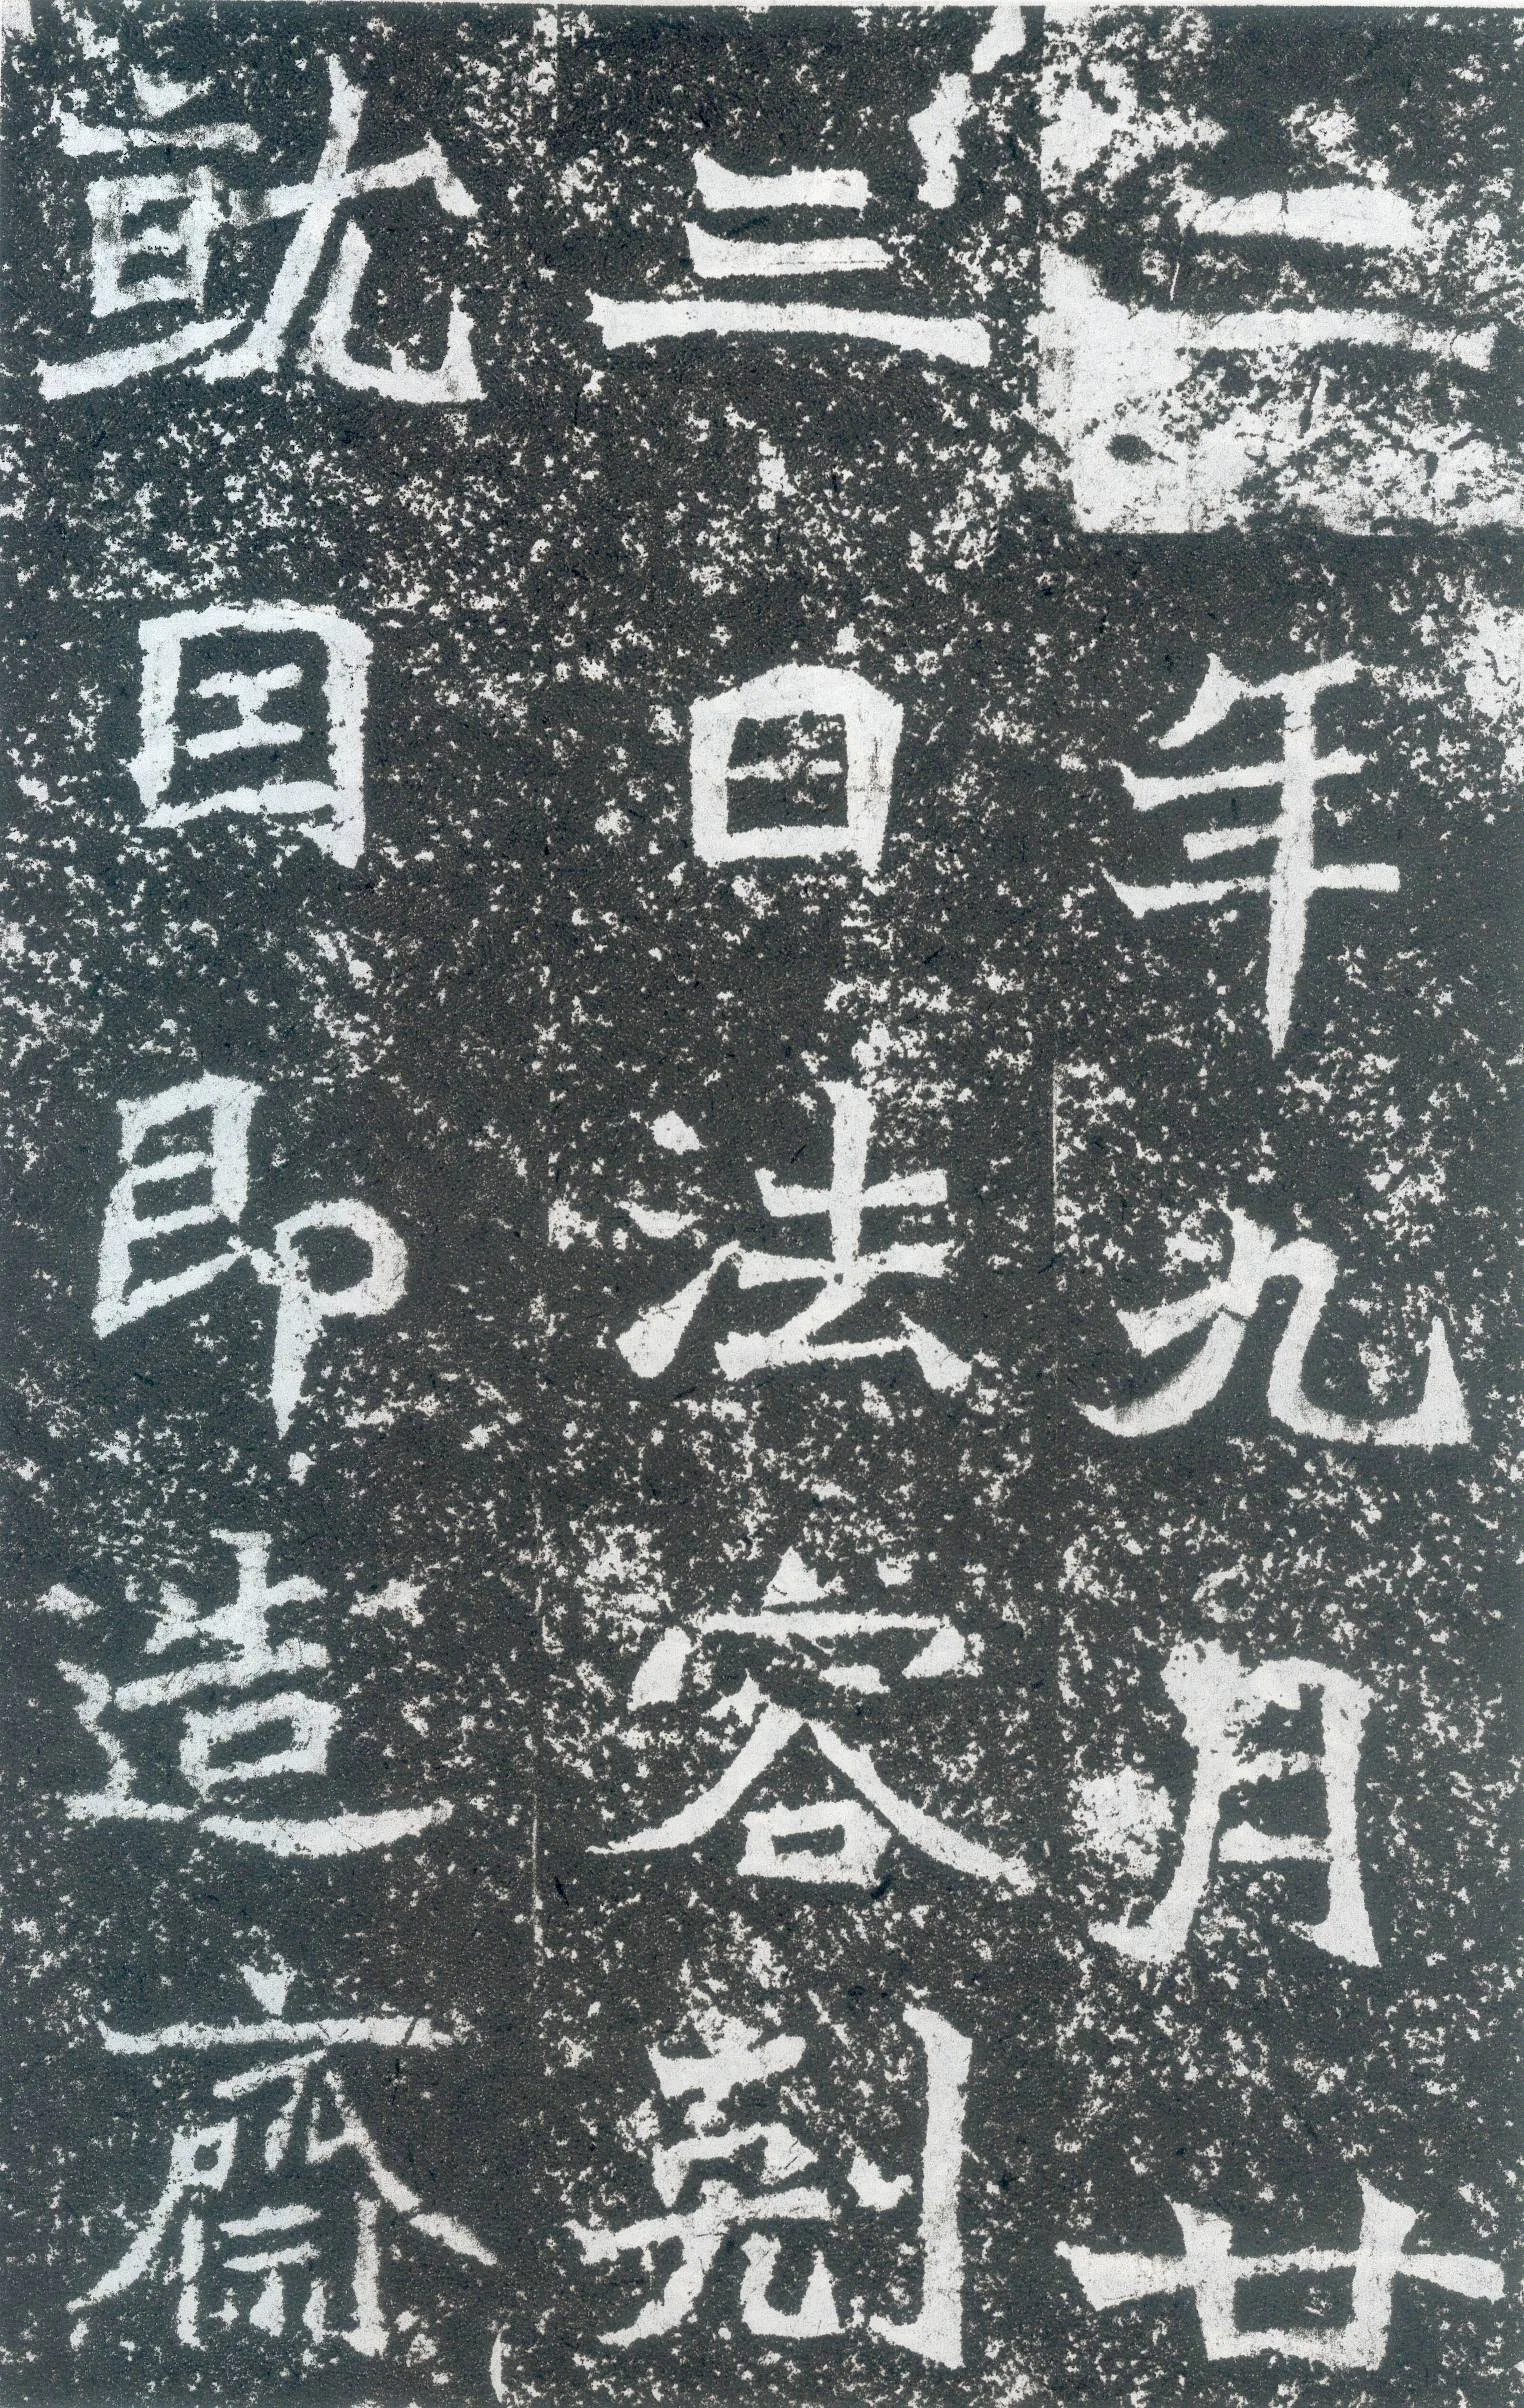 二年九月廿
三日法容剋
就囙即造齋